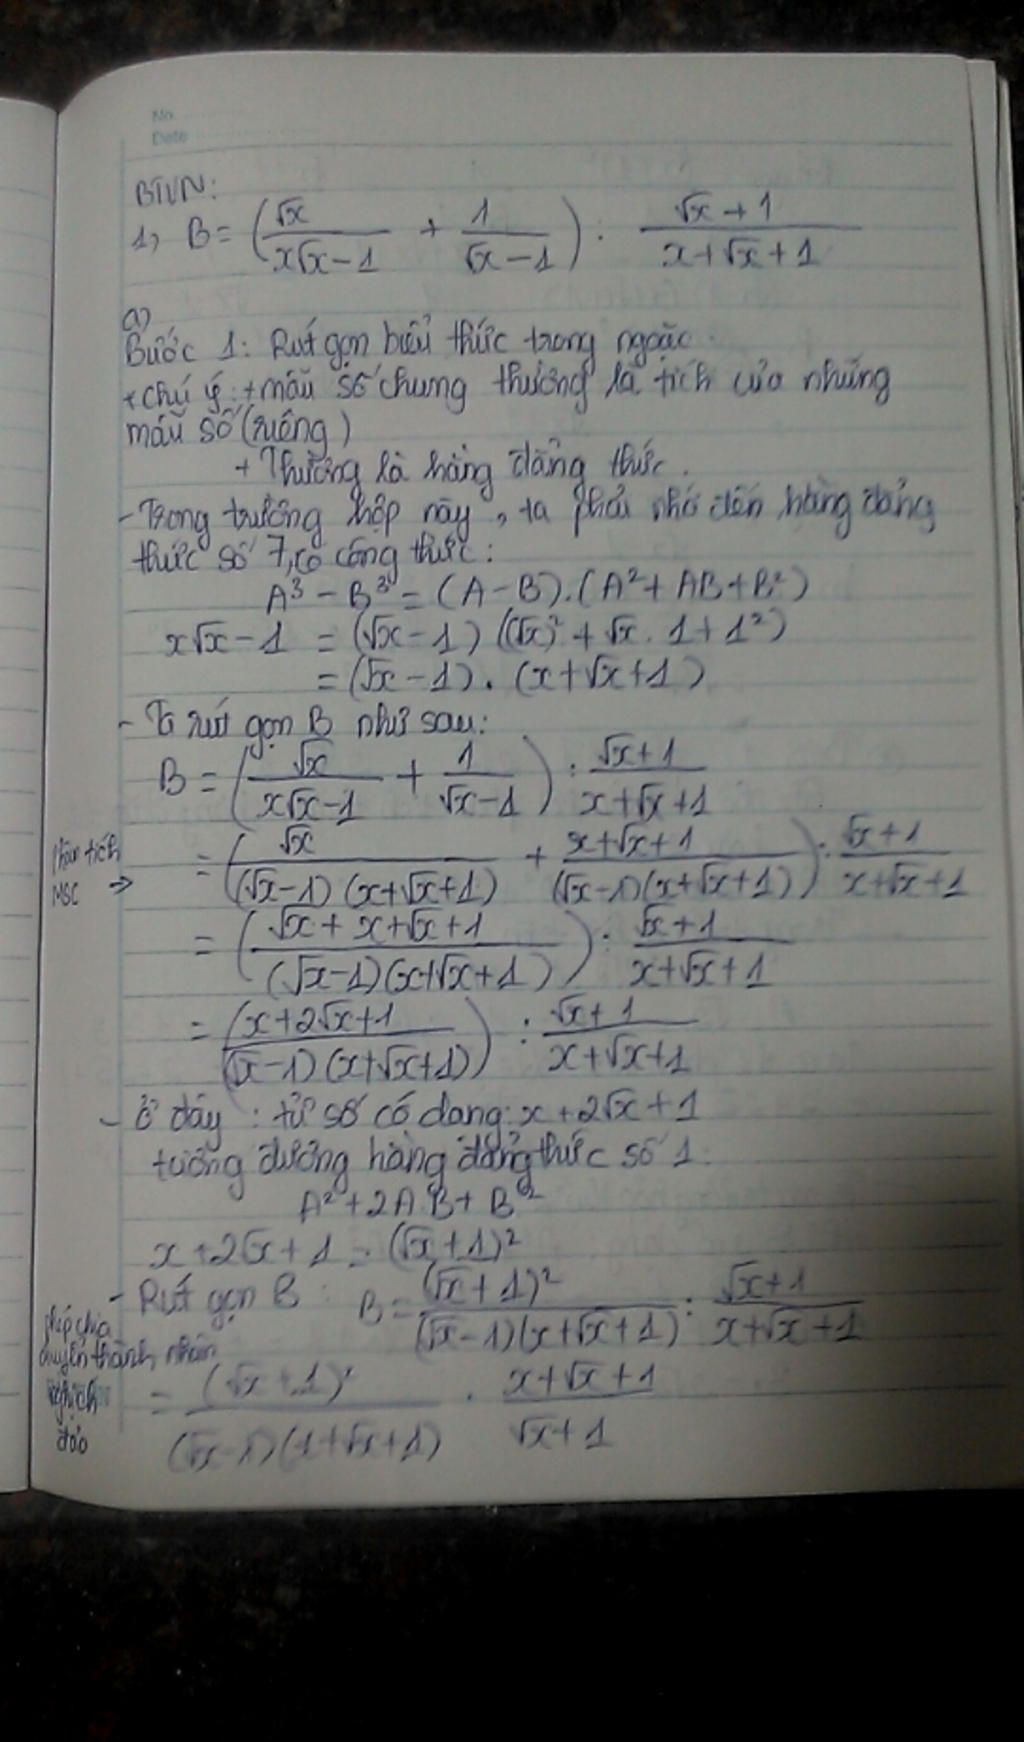 No.
Date
BTVN:
1, B = (√x / (x√x - 1) + 1 / (√x - 1)) : (√x + 1) / (x + √x + 1)
a)
Bước 1: Rút gọn biểu thức trong ngoặc.
* chú ý: + mẫu số chung thường là tích của những
mẫu số (riêng)
+ Thường là hằng đẳng thức.
- Trong trường hợp này, ta phải nhớ đến hằng đẳng
thức số 7, có công thức:
A³ - B³ = (A - B).(A² + AB + B²)
x√x - 1 = (√x - 1)((√x)² + √x . 1 + 1²)
= (√x - 1) . (x + √x + 1)
- Ta rút gọn B như sau:
B = (√x / (x√x - 1) + 1 / (√x - 1)) : (√x + 1) / (x + √x + 1)
phân tích
MSC ⇒
= (√x / ((√x - 1)(x + √x + 1)) + (x + √x + 1) / ((√x - 1)(x + √x + 1))) : (√x + 1) / (x + √x + 1)
= ((√x + x + √x + 1) / ((√x - 1)(x + √x + 1))) : (√x + 1) / (x + √x + 1)
= ((x + 2√x + 1) / ((√x - 1)(x + √x + 1))) : (√x + 1) / (x + √x + 1)
- Ở đây : tử số có dạng: x + 2√x + 1
tương đương hằng đẳng thức số 1:
A² + 2AB + B²
x + 2√x + 1 = (√x + 1)²
- Rút gọn B : B = (√x + 1)² / ((√x - 1)(x + √x + 1)) : (√x + 1) / (x + √x + 1)
phép chia
chuyển thành nhân
nghịch
đảo
= (√x + 1)² / ((√x - 1)(1 + √x + 1)) . (x + √x + 1) / (√x + 1)